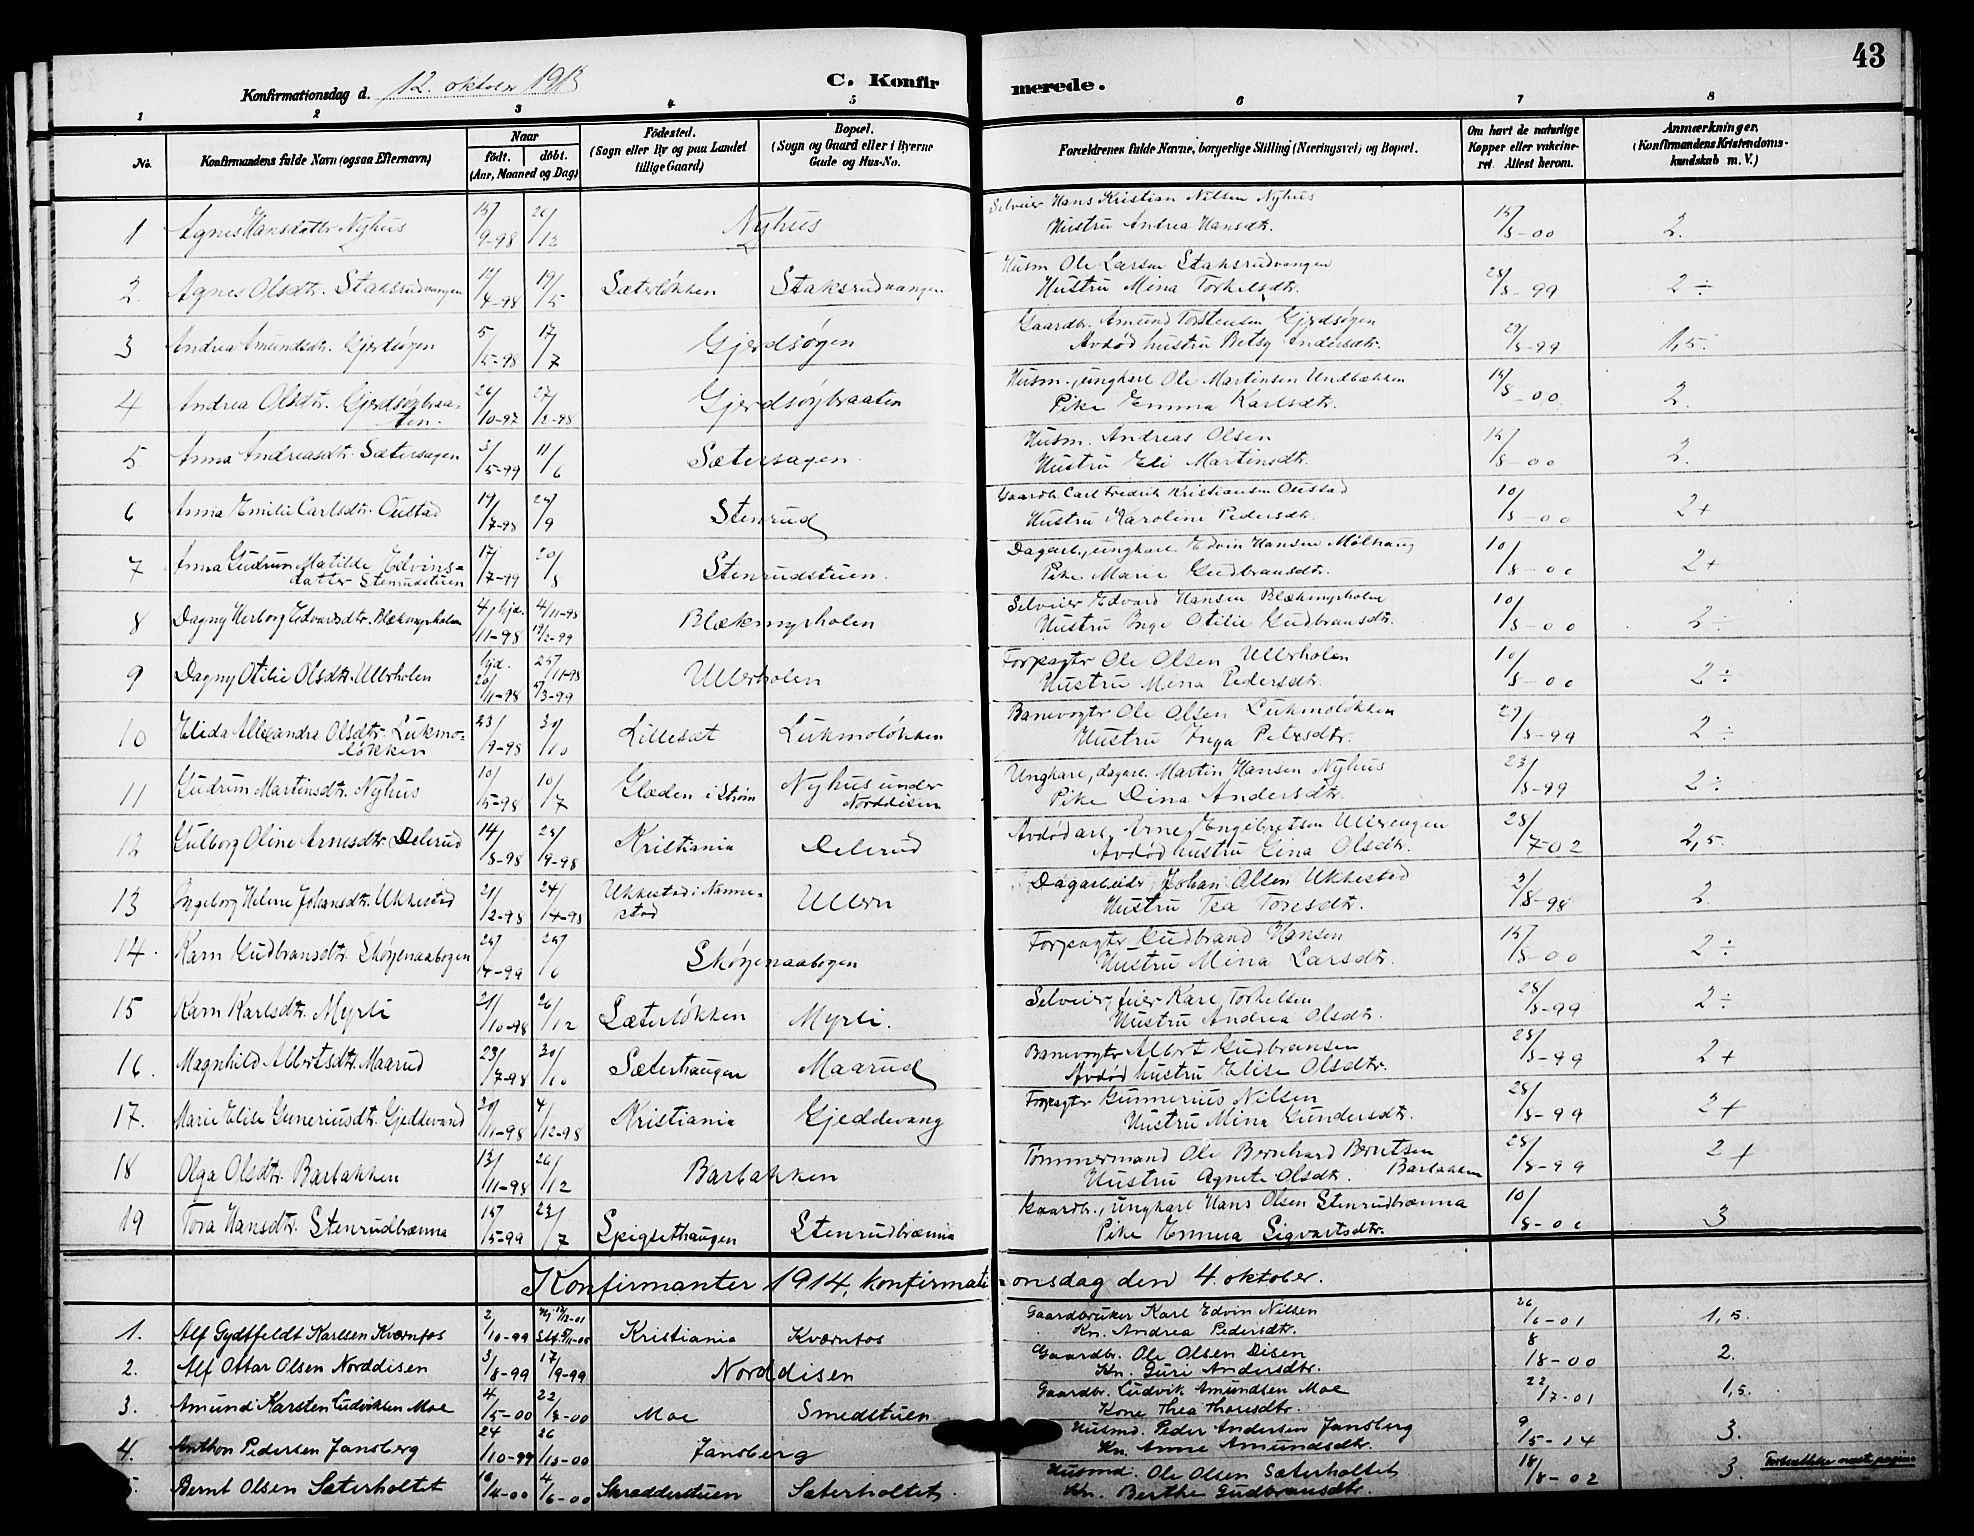 43
Konfirmationsdag d. 12. oktober 1913
C. Konfirmerede.
1 2 3 4 5 6 7 8
No. Konfirmandens fulde Navn (ogsaa Efternavn) Naar født. døbt. (Aar, Maaned og Dag) Fødested. (Sogn eller By og paa Landet tillige Gaard) Bopæl. (Sogn og Gaard eller i Byerne Gade og Hus-No. Forældrenes fulde Navne, borgerlige Stilling (Næringsvei) og Bopæl. Om havt de naturlige Kopper eller vakcineret. Attest herom. Anmærkninger. (Konfirmandens Kristendomskundskab m. V.)
1 Agnes Hansdatter Nyhus 15/9-98 26/12 Nyhus Selveier Hans Kristian Nilsen Nyhus
Hustru Andrea Hansdtr. 15/8-00 2.
2. Agnes Olsdtr. Staksrudvangen 12/4-98 19/5 Sæterløkken Staksrudvangen Husm. Ole Larsen Staksrudvangen
Hustru Mina Torkelsdtr. 28/8-99 2 ÷
3 Andrea Amundsdtr. Gjerdsøgen 5/5-98 17/7 Gjerdsøgen Gaardbr. Amund Torstensen Gjerdsøgen
Avdød hustru Betsy Andersdtr. 29/8-99 1,5.
4 Andrea Olsdtr. Gjerdsøgbraaten. 26/10-97 27/2-98 Gjerdsøgbraaten Husm., ungkarl Ole Martinsen Undbækken
Pike Emma Karlsdtr. 15/8-00 2.
5 Anna Andreasdtr. Sætersagen 3/5-99 11/6 Sætersagen Husm. Andreas Olsen
Hustru Eli Martinsdtr. 15/8-00 2.
6 Anna Emilie Carlsdtr. Oustad 19/7-98 24/9 Stenrud Gaardbr. Carl Fredrik Kristiansen Oustad
Hustru Karoline Pedersdtr. 10/8-00 2+
7 Anna Gudrun Matilde Edvins-
datter Stenrudstuen 17/7-99 20/8 Stenrudstuen. Dagarb., ungkarl Edvin Hansen
Pike Marie Gudbransdtr. 10/8-00 2+
8 Dagny Herborg Edvardsdtr. Blækmyrholen 4/11-98 hjd. 4/11-98 19/2-99 Blækmyrholen Selveier Edvard Hansen Blækmyrholen
Hustru Inga Otilie Gudbransdtr. 10/8-00 2 ÷
9 Dagny Otilie Olsdtr. Ullerholen 20/11-98 hjd. 25/11-98 5/3-99 Ullerholen Forpagter Ole Olsen Ullerholen
Hustru Mina Pedersdtr. 10/8-00 2 ÷
10 Elida Allexandra Olsdtr. Lukmo-
løkken 23/9-98 30/10 Lillesæt Lukmoløkken Banevogter Ole Olsen Lukmoløkken
Hustru Inga Pedersdtr. 29/8-99 2 ÷
11 Gudrun Martinsdtr. Nyhus 10/5-98 10/7 Glæden i Strøm Nyhus under Norddisen Ungkarl, dagarb. Martin Hansen Nyhus
Pike Dina Andersdtr. 23/8-99 2 ÷
12 Gulborg Oline Arnesdtr. Delerud 14/8-98 25/9-98 Kristiania Delerud Avdød arb. Arne Engebretsen Ullerengen
Avdød hustru Gina Olsdtr. 28/7-02 2,5.
13 Ingeborg Helene Johansdtr. Ukkestad 21/2-98 24/4-98 Ukkestad i Nannestad Ullern Dagarbeider Johan Olsen Ukkestad
Hustru Tea Toresdtr. 3/8-98 2.
14. Karn Gudbransdtr. Skøyenaabogen 24/4-99 25/6 Skøyenaabogen Forpagter Gudbrand Hansen
Hustru Mina Larsdtr. 15/8-00 2 ÷
15 Karn Karlsdtr. Myrli 21/10-98 26/12 Sæterløkken Myrli. Selveier, feier Karl Torkelsen
Hustru Andrea Olsdtr. 28/8-99 2 ÷
16. Magnhild Albertsdtr. Maarud 23/7-98 30/10 Sæterhaugen Maarud Banevogter Albert Gudbransen
Avdød hustru Elise Olsdtr. 28/8-99 2+
17. Marie Elise Guneriusdtr. Gjeddevand 20/11-98 4/12-98 Kristiania Gjeddevang Forpagter Gunnerius Nilsen
Hustru Mina Gundersdtr. 28/8-99 2+
18 Olga Olsdtr. Barbakken 13/11-98 26/12 Barbakken Tømmermand Ole Bernhard Berntsen Barbakken
Hustru Agnete Olsdtr. 28/8-99 2+
19 Tora Hansdtr. Stenrudbrænna 15/5-99 23/7 Spigsethaugen Stenrudbrænna Gaardbr., ungkarl Hans Olsen Stenrudbrænna
Pike Emma Sigvartsdtr. 10/8-00 3
Konfirmanter 1914, konfirmationsdag den 4. oktober.
1. Alf Karlsen Kværnfos 2/10-99 Kristiania Kværnfos Gaardbruker Karl Edvin Nilsen
Kn. Andrea Pedersdtr. 26/6-01 1,5.
2. Alf Ottar Olsen Norddisen 3/8-99 17/9-99 Norddisen Gaardbr. Ole Olsen Disen
Kn. Guri Andersdtr. 8/8-00 2.
3. Amund Karsten Ludviksen Moe 4/5-00 22/7-00 Moe Smedstuen Gaardbr. Ludvik Amundsen Moe
Kone Thea Thoresdtr. 22/7-01 1,5.
4. Anthon Pedersen Jansberg 24/10-99 Jansberg Husmd. Peder Andersen Jansberg
Kn. Anne Amundsdtr. 9/5-14 3.
5. Bernt Olsen Sæterholtet 18/4-00 4/6-00 Skrædderstuen Sæterholtet Husmd. Ole Olsen Sæterholtet
Kn. Berthe Gudbransdtr. 18/8-02 3. Fortsættelse næste pagina